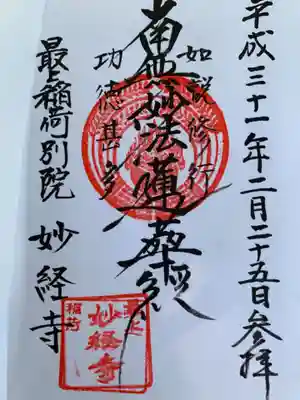 平成三十一年二月二十五日参拝
如説修行
南無妙法蓮華経
功徳甚多
最上稲荷別院 妙経寺
最上
稲荷
妙経寺